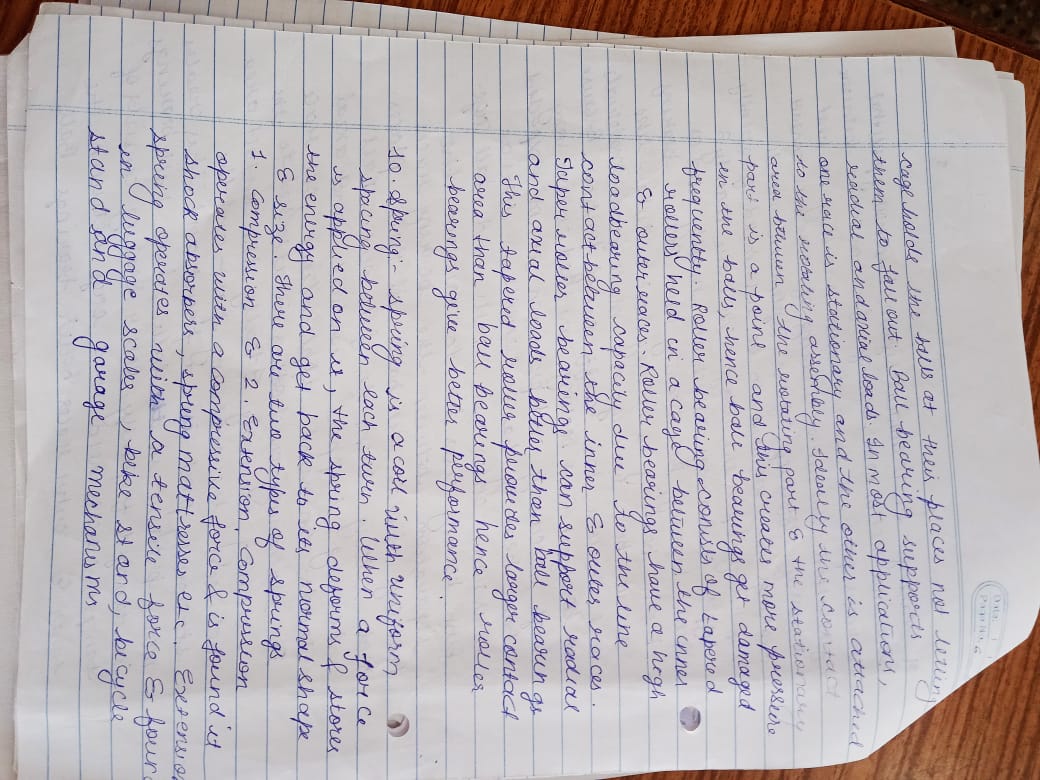 Date: / /
Page No. 6
cage holds the balls at their places not letting
them to fall out. Ball bearing supports
radial and axial loads. In most application,
one race is stationary and the other is attached
to the rotating assembly. Ideally the contact
area between the rotating part & the stationary
part is a point and this creates more pressure
in the balls, hence ball bearings get damaged
frequently. Roller bearing consists of tapered
rollers held in a cage between the inner
& outer races. Roller bearings have a high
loadbearing capacity due to the line
contact between the inner & outer races.
Taper roller bearings can support radial
and axial loads better than ball bearings
This tapered roller provides larger contact
area than ball bearings hence roller
bearings give better performance.
10. Spring - spring is a coil with uniform
spacing between each turn. When a force
is applied on it, the spring deforms & store
the energy and get back to its normal shape
& size. There are two types of springs
1. Compression & 2. Extension. Compression
operates with a compressive force & is found in
shock absorbers, spring mattresses etc. Extension
spring operates with a tensile force & found
in luggage scales, bike stand, bicycle
stand and garage mechanisms